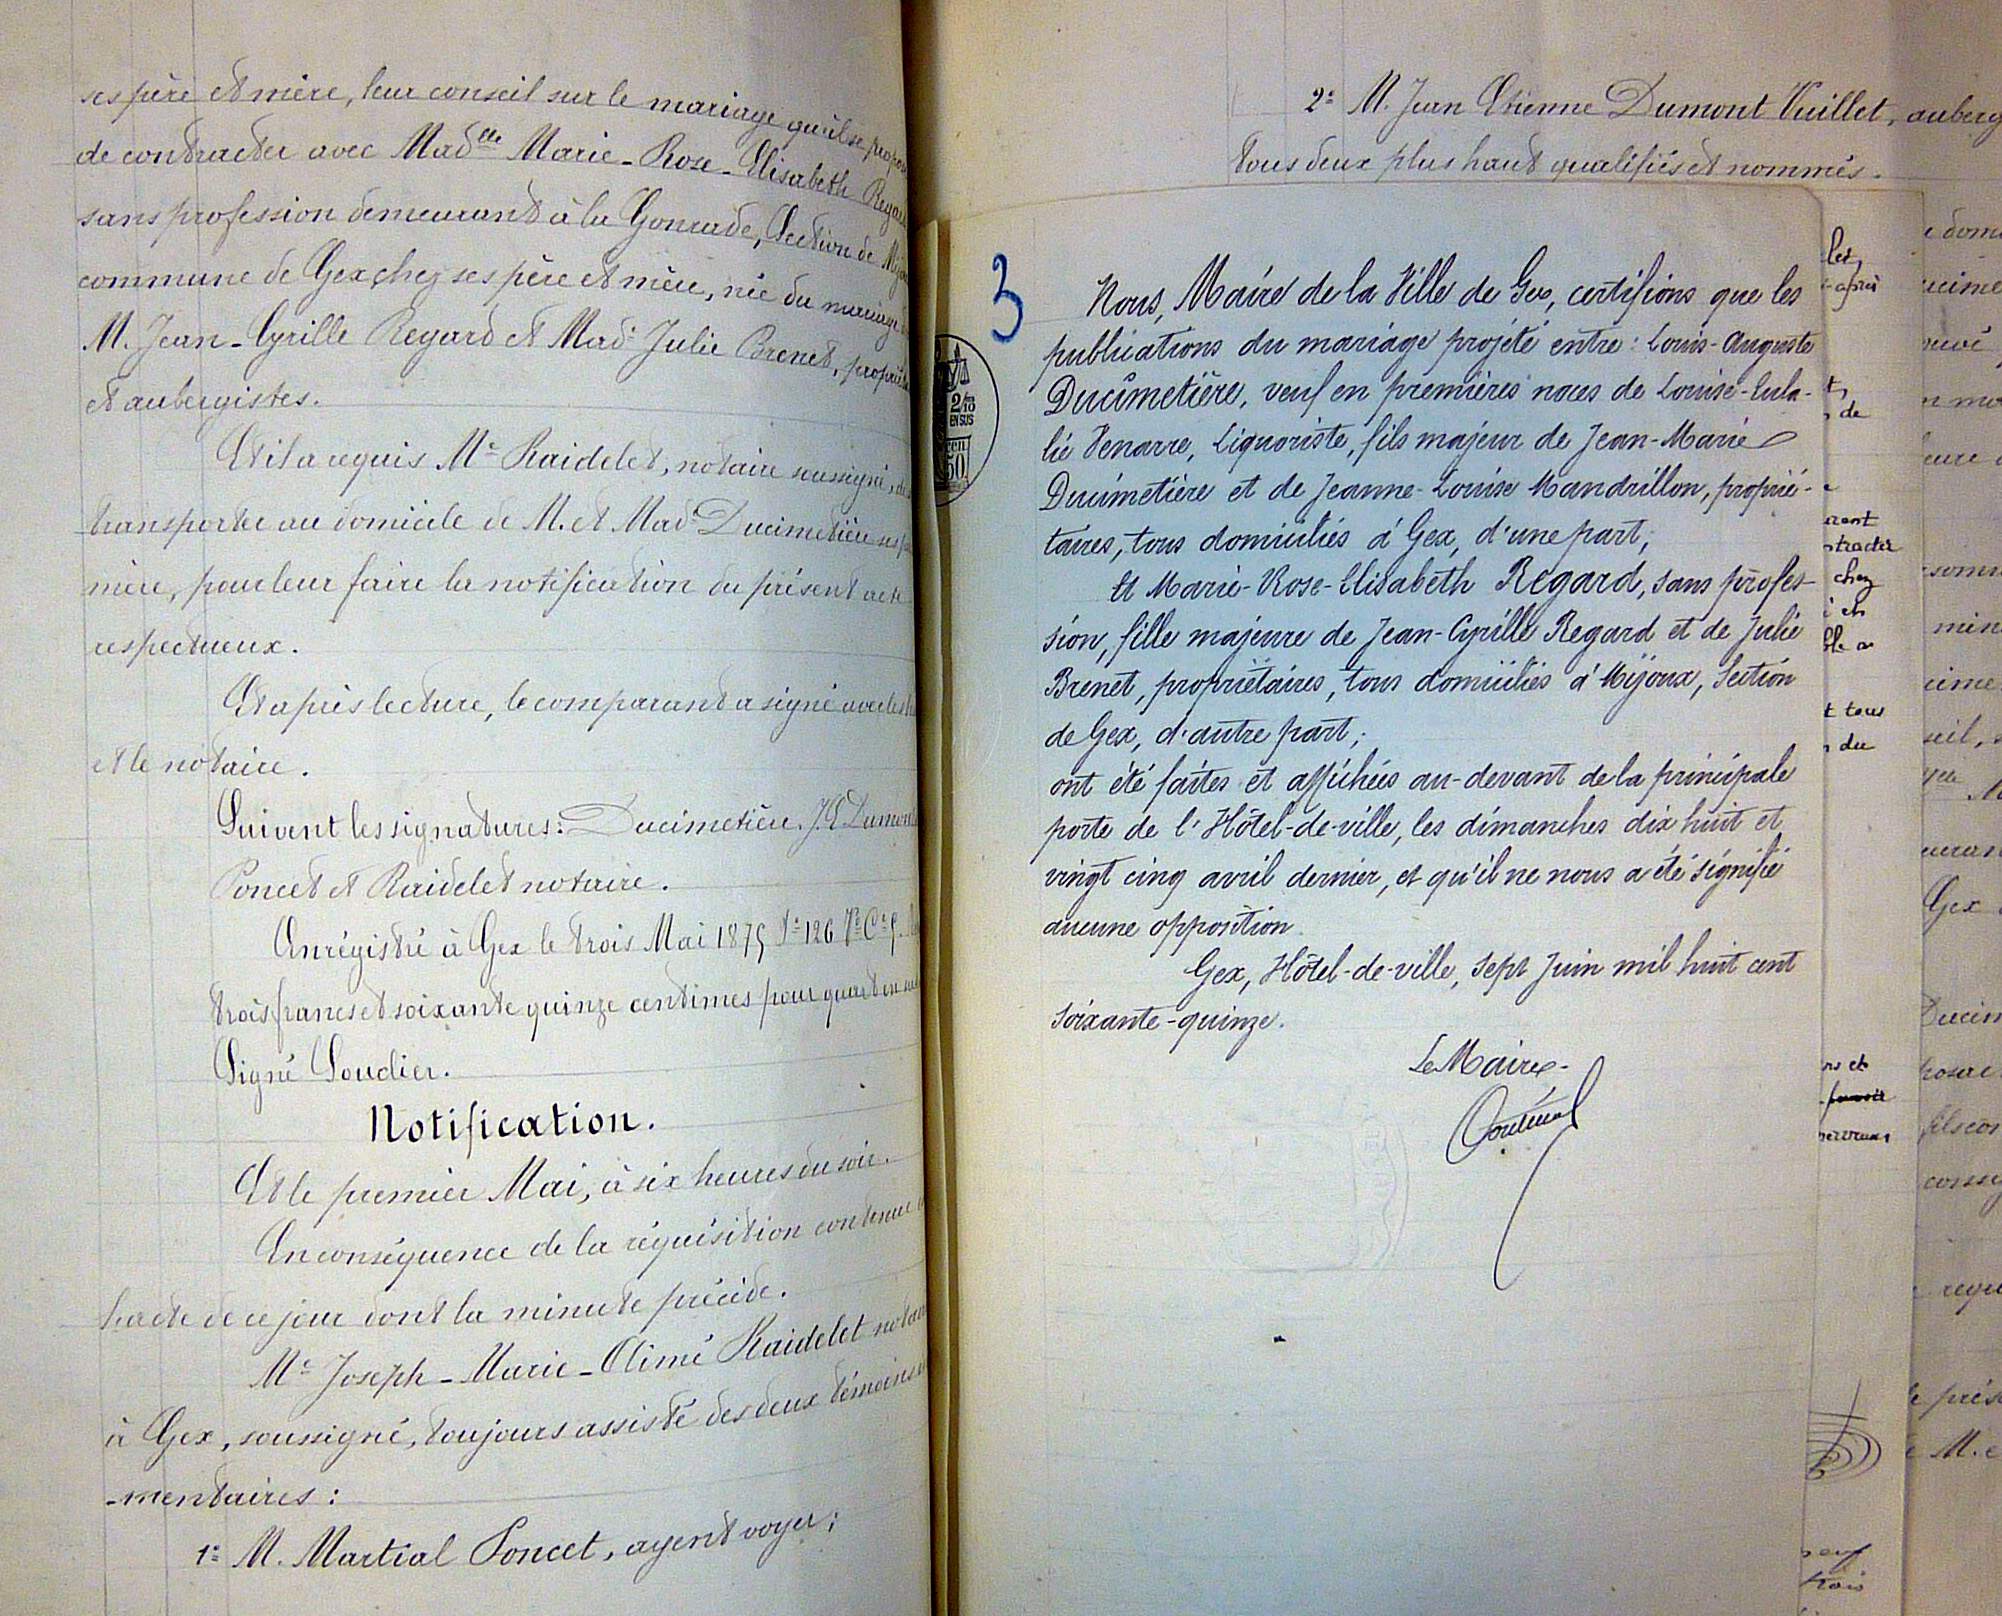 ses père et mère, leur conseil sur le mariage qu'il se propose
de contracter avec Mad.lle Marie-Rose-Elisabeth Regard
sans profession demeurant à la Gonrade, Section de Mijoux
commune de Gex, chez ses père et mère, née du mariage de
M. Jean-Cyrille Regard et Mad.e Julie Brenet, propriét
et aubergistes.
Et il a requis Me Raidelet, notaire soussigné, de
transporter au domicile de M. et Made Ducimetière ses p
mère, pour leur faire la notification du présent acte
respectueux.
Et après lecture, le comparant a signé avec les
et le notaire.
Suivent les signatures: Ducimetière. J. E. Dumont
Poncet et Raidelet notaire.
Enrégistré à Gex le trois Mai 1875 f° 126 V° C° 9.
trois francs et soixante quinze centimes pour quart en sus
Signé Soudier.
Notification.
Et le premier Mai, à six heures du soir.
En conséquence de la réquisition contenue
l'acte de ce jour dont la minute précède.
Me Joseph-Marie-Aimé Raidelet notaire
à Gex, soussigné, toujours assisté des deux témoins
-mentaires:
1° M. Martial Poncet, agent voyer;
2° M. Jean Etienne Dumont Vuillet, auberg
tous deux plus haut qualifiés et nommés.
3
2/10
EN SUS
50
Nous, Maire de la Ville de Gex, certifions que les
publications du mariage projeté entre: Louis-Auguste
Ducimetière, veuf en premières noces de Louise-Eula-
lie Venarre, Liquoriste, fils majeur de Jean-Marie
Ducimetière et de Jeanne-Louise Mandrillon, proprié-
taires, tous domiciliés à Gex, d'une part;
Et Marie-Rose-Elisabeth Regard, sans profes-
sion, fille majeure de Jean-Cyrille Regard et de Julie
Brenet, propriétaires, tous domiciliés à Mijoux, Section
de Gex, d'autre part;
ont été faites et affichées au-devant de la principale
porte de l'Hôtel-de-ville, les dimanches dix huit et
vingt cinq avril dernier, et qu'il ne nous a été signifié
aucune opposition.
Gex, Hôtel-de-ville, sept Juin mil huit cent
soixante-quinze.
Le Maire